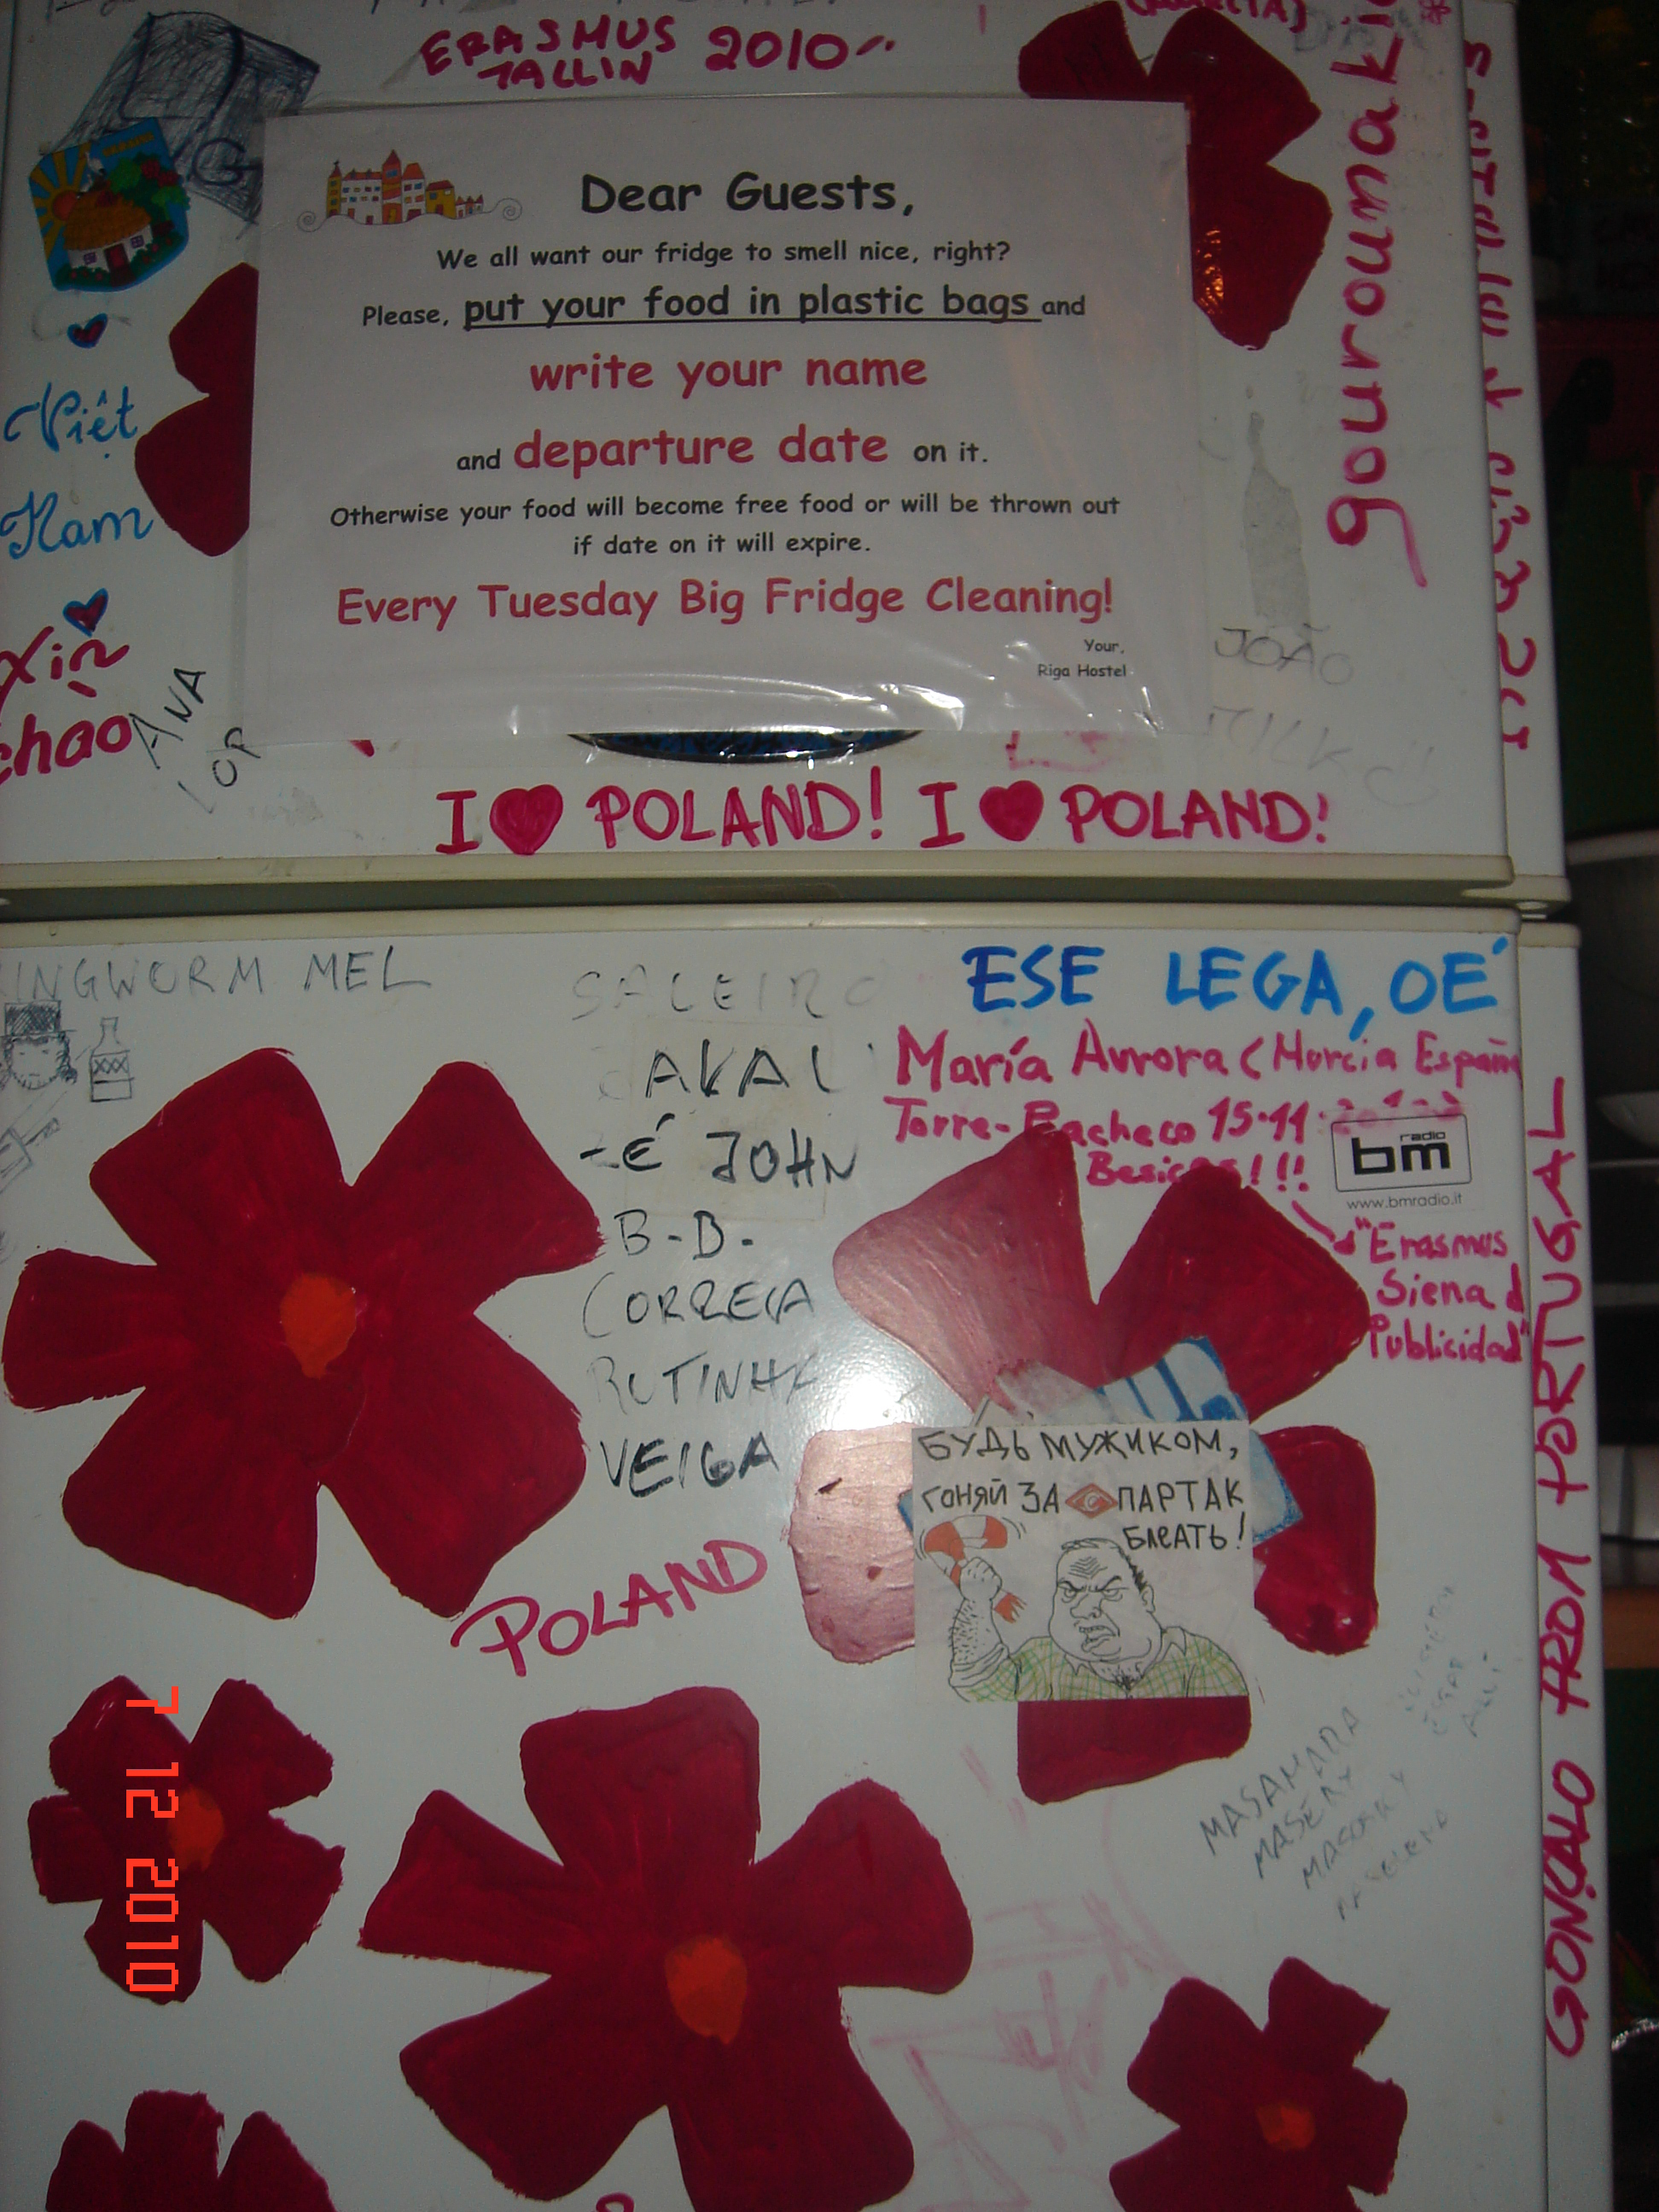 ERASMUS
TALLIN 2010
gouroumaki
Dear Guests,
We all want our fridge to smell nice, right?
Please, put your food in plastic bags and
write your name
and departure date on it.
Otherwise your food will become free food or will be thrown out
if date on it will expire.
Every Tuesday Big Fridge Cleaning!
Your,
Riga Hostel
Việt
Nam
Xin
chào
ANA
JOÃO
I ♥ POLAND! I ♥ POLAND!
INGWORM MEL
SALEIRO
-É JOHN
B.D.
CORREIA
VEIGA
POLAND
ESE LEGA, OÉ
María Aurora (Murcia España
Torre-Pacheco 15-11
Besicos!!!
"Erasmus
Siena d
Publicidad"
bm radio
www.bmradio.it
БУДЬ МУЖИКОМ,
ГОНЯЙ ЗА СПАРТАК
БЛЕАТЬ!
MASAMARA
GONÇALO FROM PORTUGAL
7 12 2010